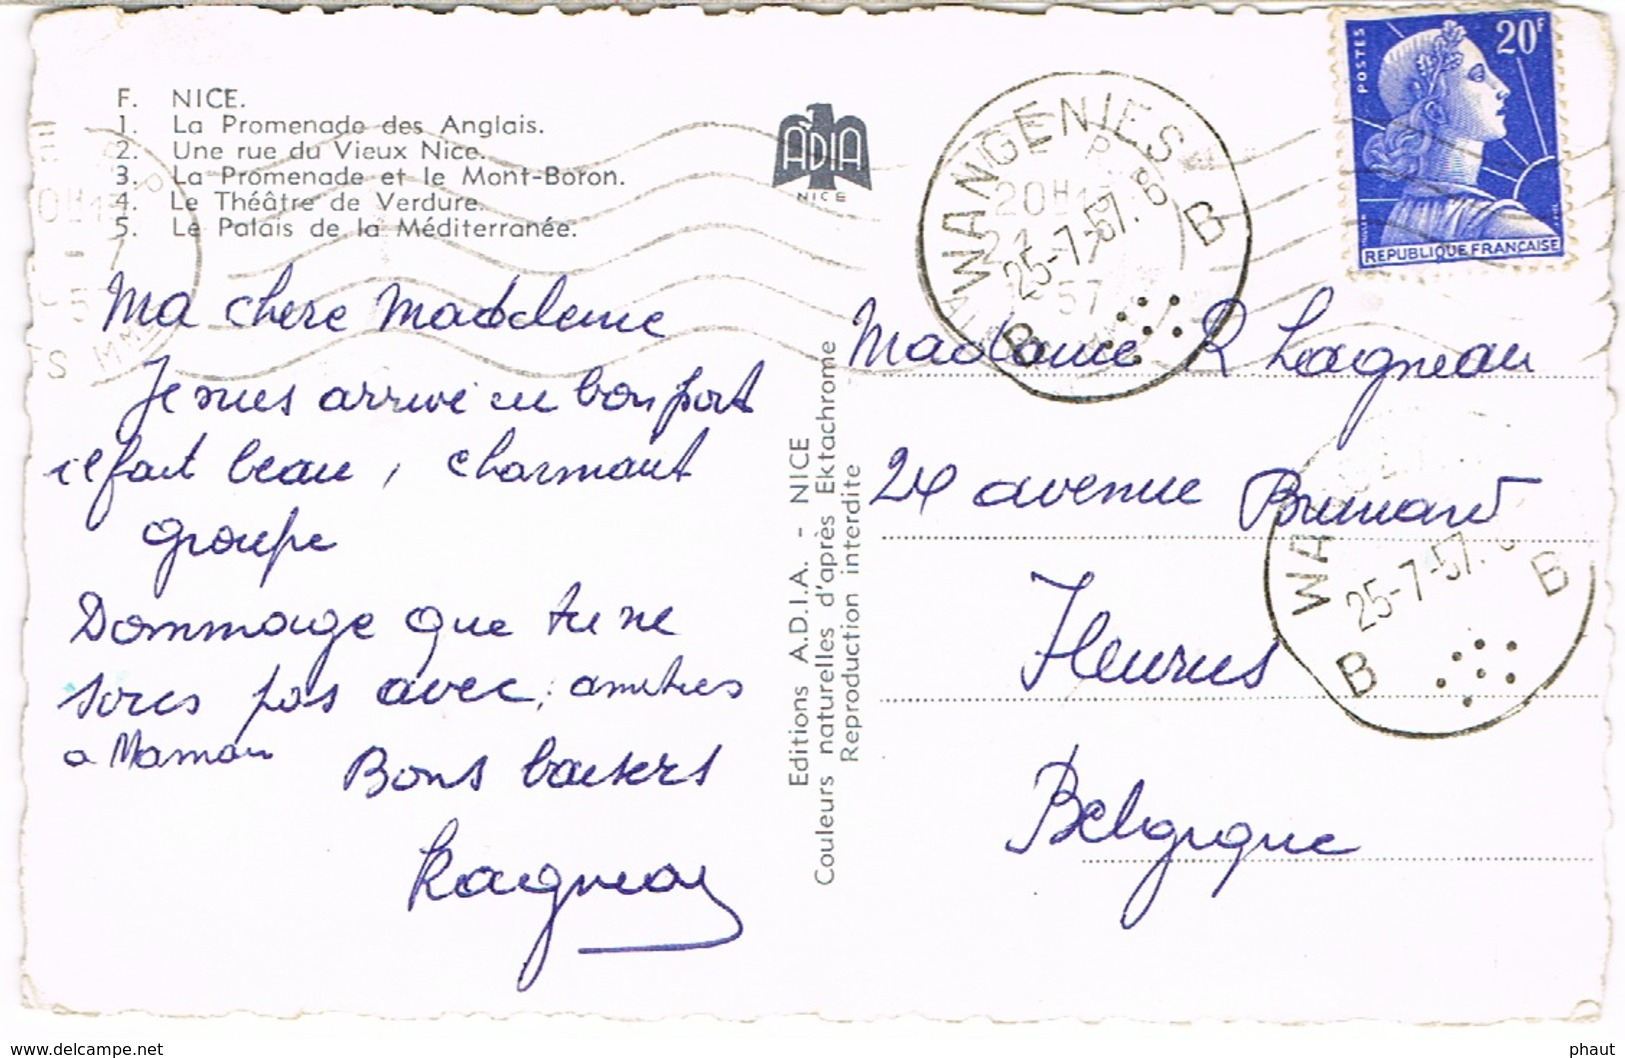 F. NICE.
1. La Promenade des Anglais.
2. Une rue du Vieux Nice.
3. La Promenade et le Mont-Boron.
4. Le Théâtre de Verdure.
5. Le Palais de la Méditerranée.
ADIA
NICE
WANGENIES
20H15
25-7-57. 8
57
B B
POSTES
20F
REPUBLIQUE FRANÇAISE
Ma chere Madeleine
Je suis arrivé en bon port
il fait beau, charmant
groupe
Dommage que tu ne
sois pas avec, amitiés
a Maman
Bons baisers
Editions A.D.I.A. - NICE
Couleurs naturelles d'après Ektachrome
Reproduction interdite
Madame R Lagneau
24 avenue Brunard
Fleurus
Belgique
WA
25-7-57.
B B
delcampe.net
phaut